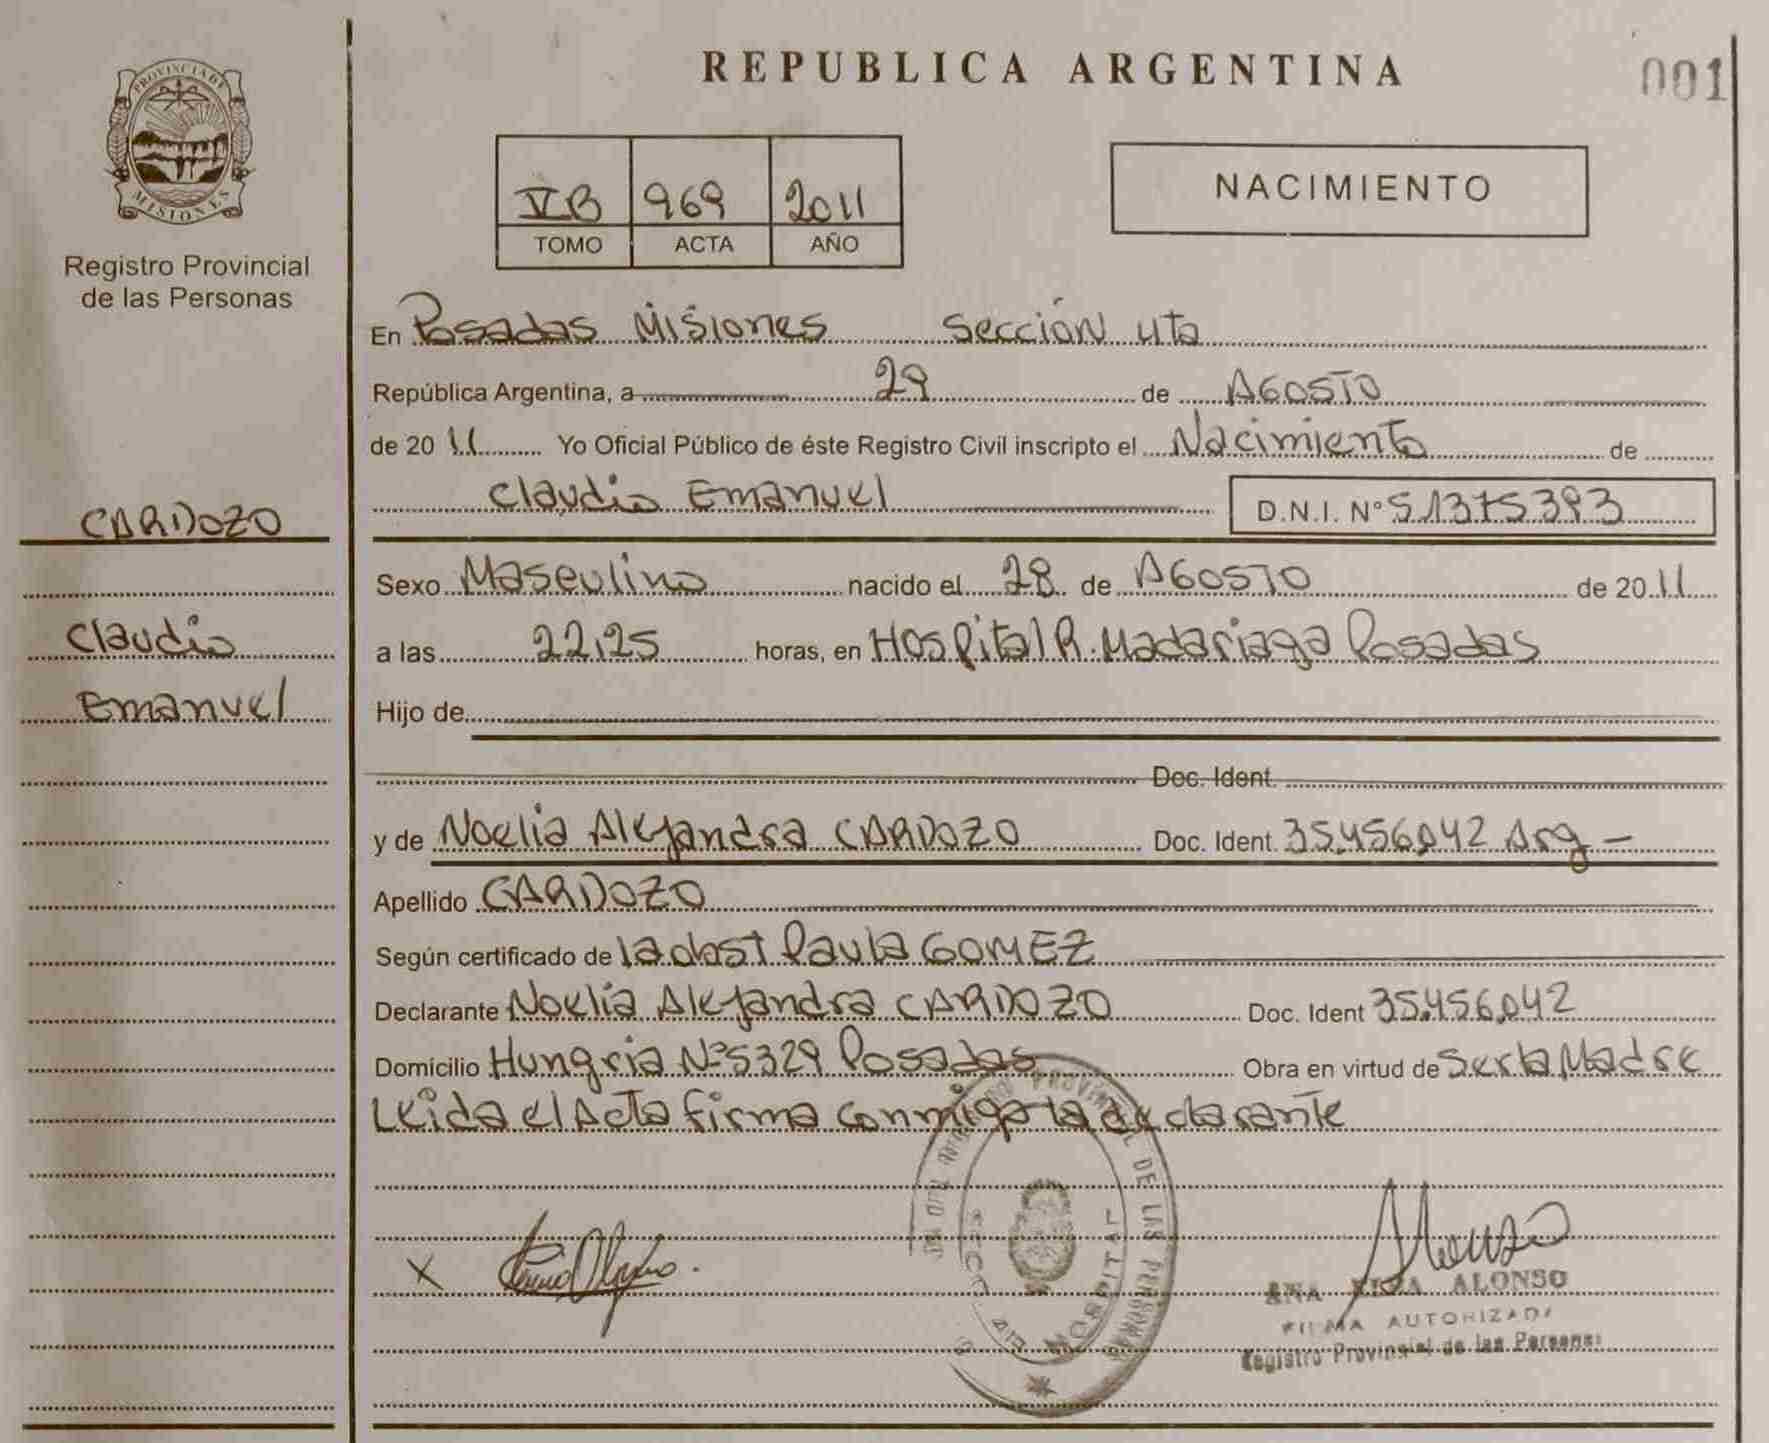 PROVINCIA DE
MISIONES
Registro Provincial
de las Personas
CARDOZO
Claudio
Emanuel
REPUBLICA ARGENTINA
001
VB 969 2011
TOMO ACTA AÑO
NACIMIENTO
En Posadas Misiones Sección 4ta
República Argentina, a 29 de AGOSTO
de 20 11 Yo Oficial Público de éste Registro Civil inscripto el Nacimiento de
Claudio Emanuel D.N.I. N° 51375393
Sexo Masculino nacido el 28 de AGOSTO de 20 11
a las 22,25 horas, en Hospital R. Madariaga Posadas
Hijo de
Doc. Ident.
y de Noelia Alejandra CARDOZO Doc. Ident. 35.456.042 Arg -
Apellido CARDOZO
Según certificado de la obst Paula GOMEZ
Declarante Noelia Alejandra CARDOZO Doc. Ident 35.456.042
Domicilio Hungria N° 5329 Posadas Obra en virtud de Ser la Madre
Leida el Acta firma conmigo la declarante
X
DE LAS PERSONAS
HOSPITAL
ANA ALONSO
FIRMA AUTORIZADA
Registro Provincial de las Personas